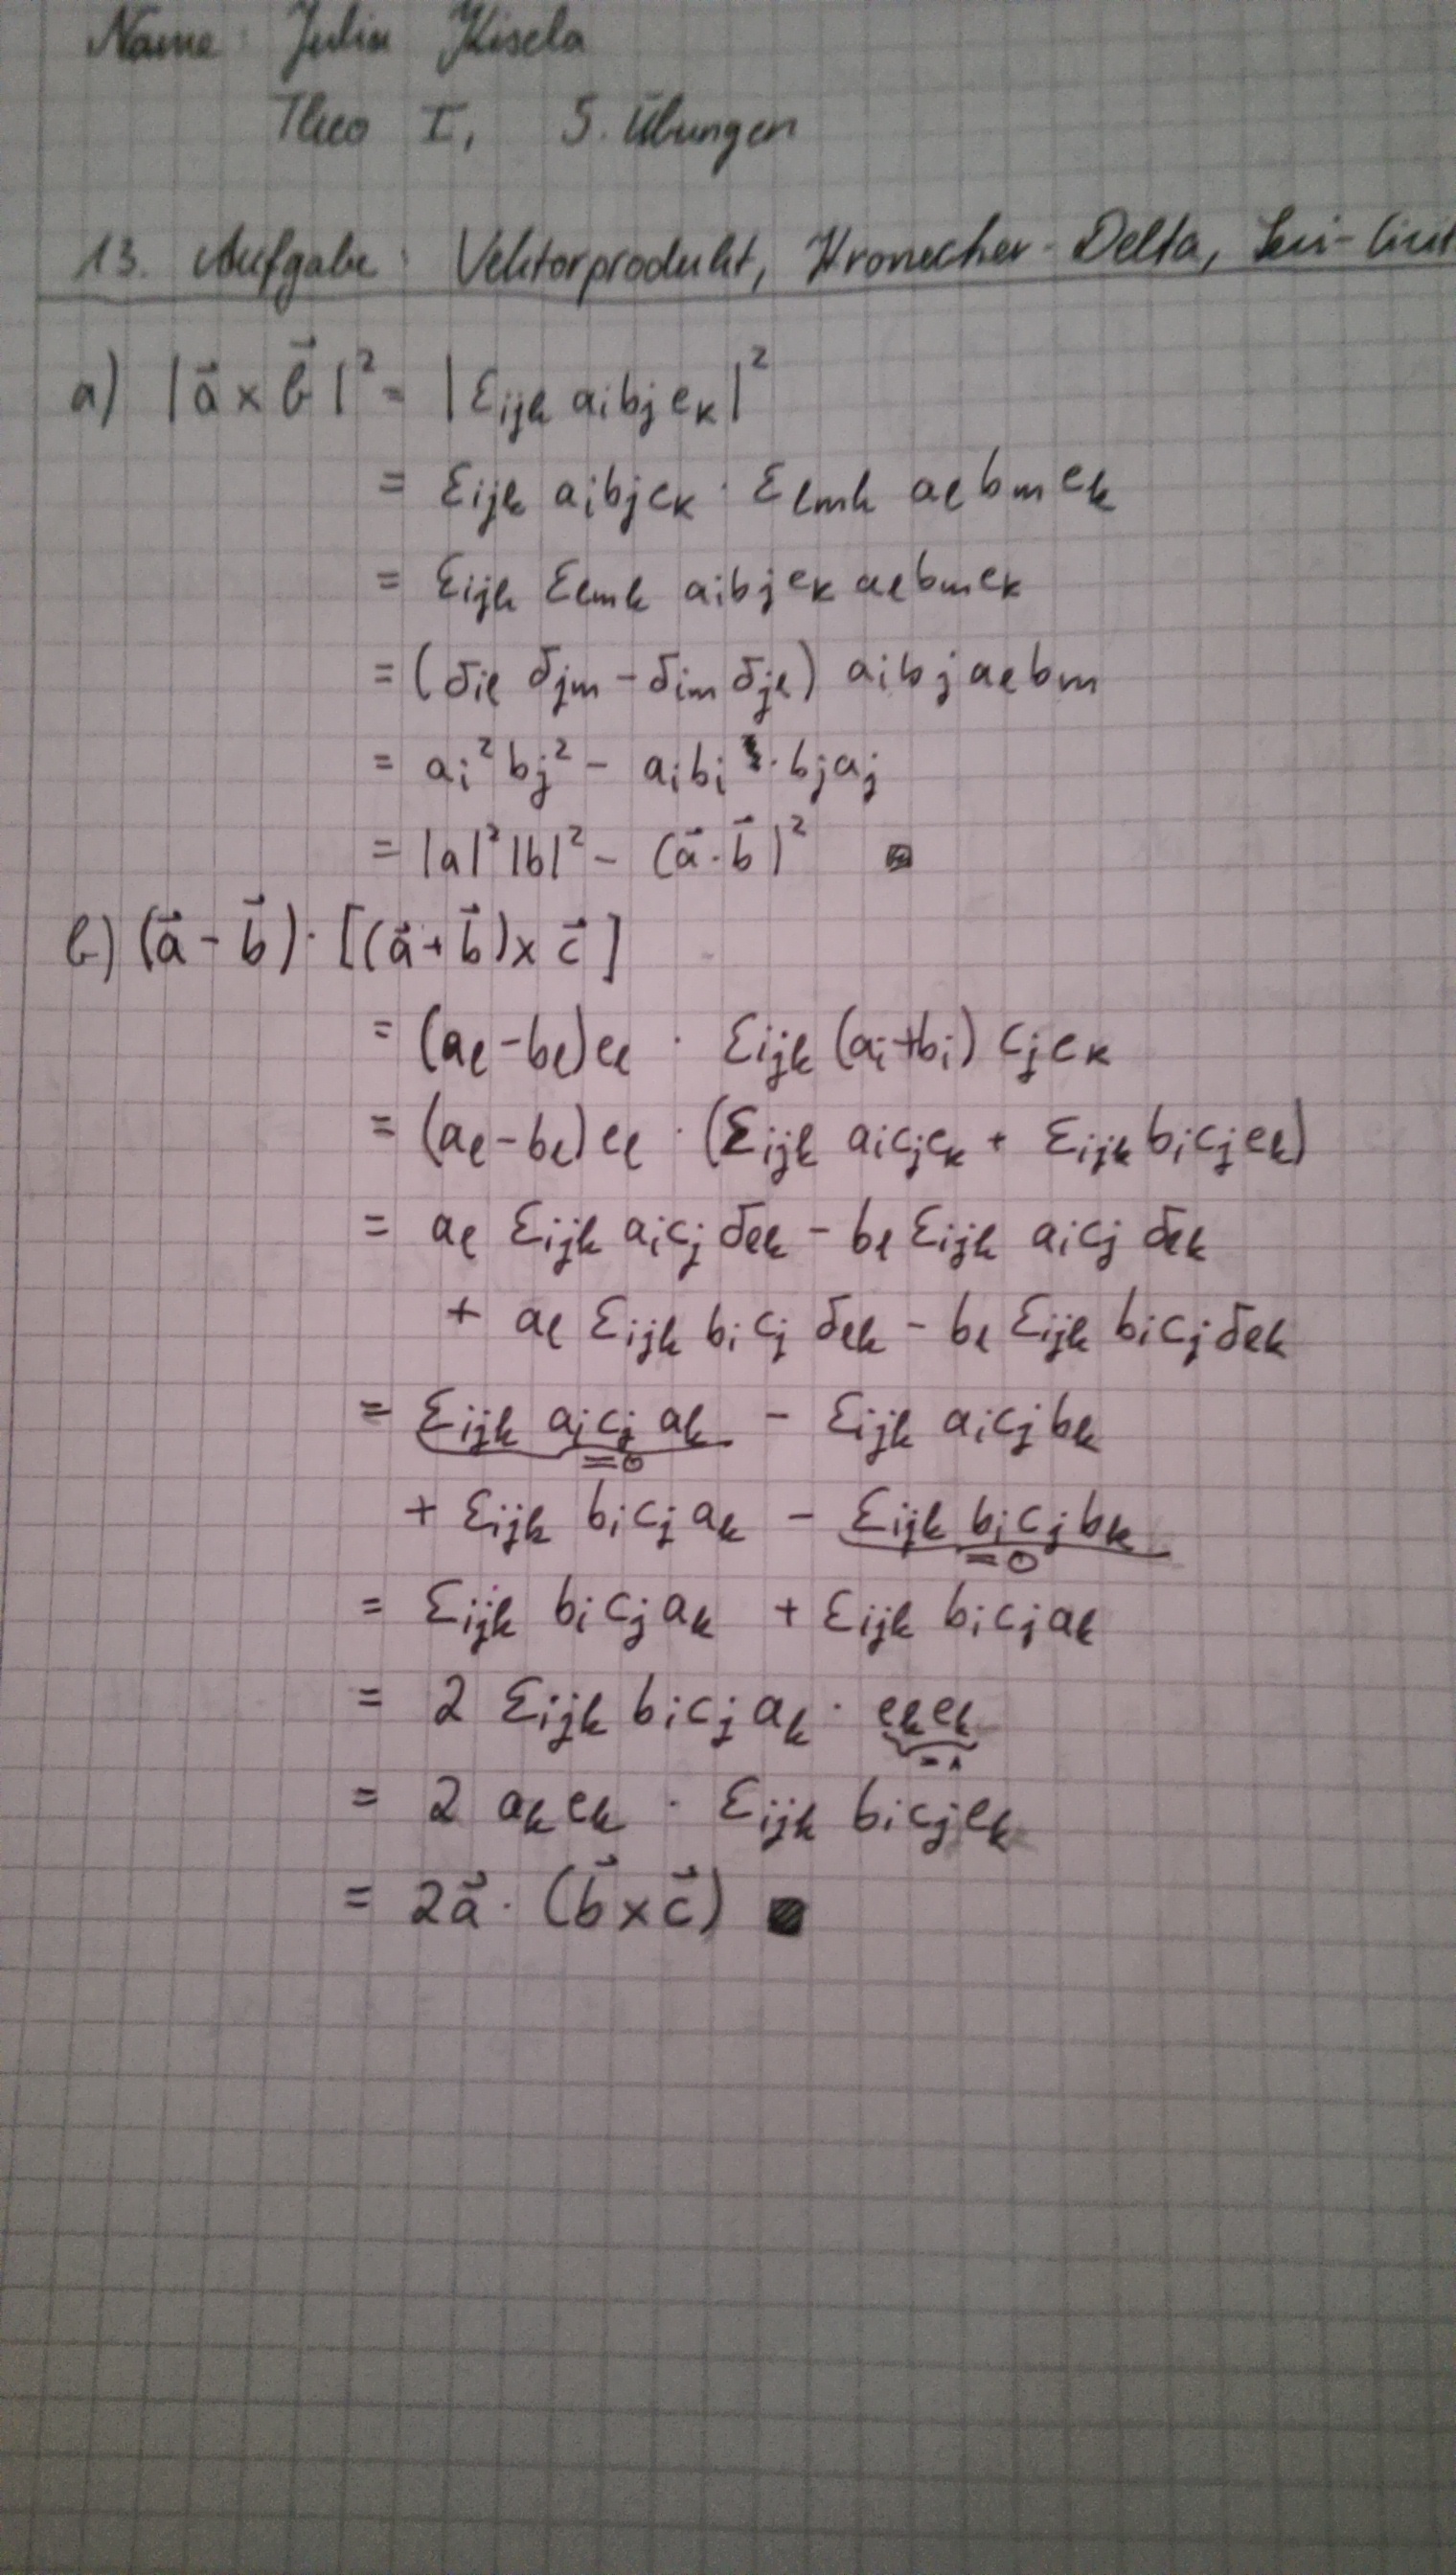 Name: Julia Kisela
Theo I, 5. Übungen
13. Aufgabe: Vektorprodukt, Kronecker-Delta, Levi-Civit
a) |a⃗ × b⃗|² = |εijk aibj ek|²
= εijk aibjek · εlmk albm ek
= εijk εlmk aibjek albmek
= (δil δjm - δim δjl) aibjalbm
= ai²bj² - aibi · bjaj
= |a|²|b|² - (a⃗·b⃗)²
b) (a⃗ - b⃗) · [(a⃗+b⃗)× c⃗]
= (al-bl)el · εijk (ai+bi) cjek
= (al-bl)el · (εijk aicjek + εijk bicjek)
= al εijk aicj δlk - bl εijk aicj δlk
+ al εijk bicj δlk - bl εijk bicj δlk
= εijk aicj ak - εijk aicjbk
=0
+ εijk bicjak - εijk bicjbk
=0
= εijk bicjak + εijk bicjak
= 2 εijk bicjak · ekek
=1
= 2 akek · εijk bicjek
= 2a⃗ · (b⃗×c⃗)